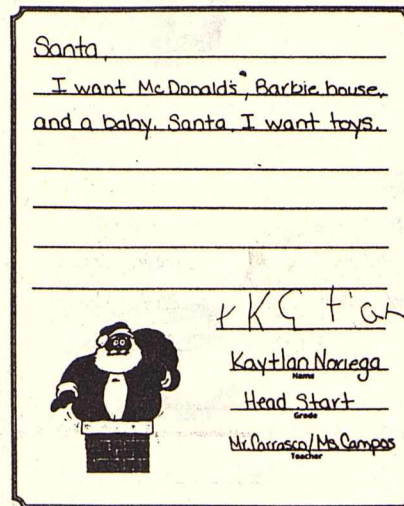 Santa,
I want McDonald's, Barbie house,
and a baby. Santa, I want toys.
Kaytlan Noriega
Name
Head Start
Grade
Mr. Carrasco/Ms. Campos
Teacher